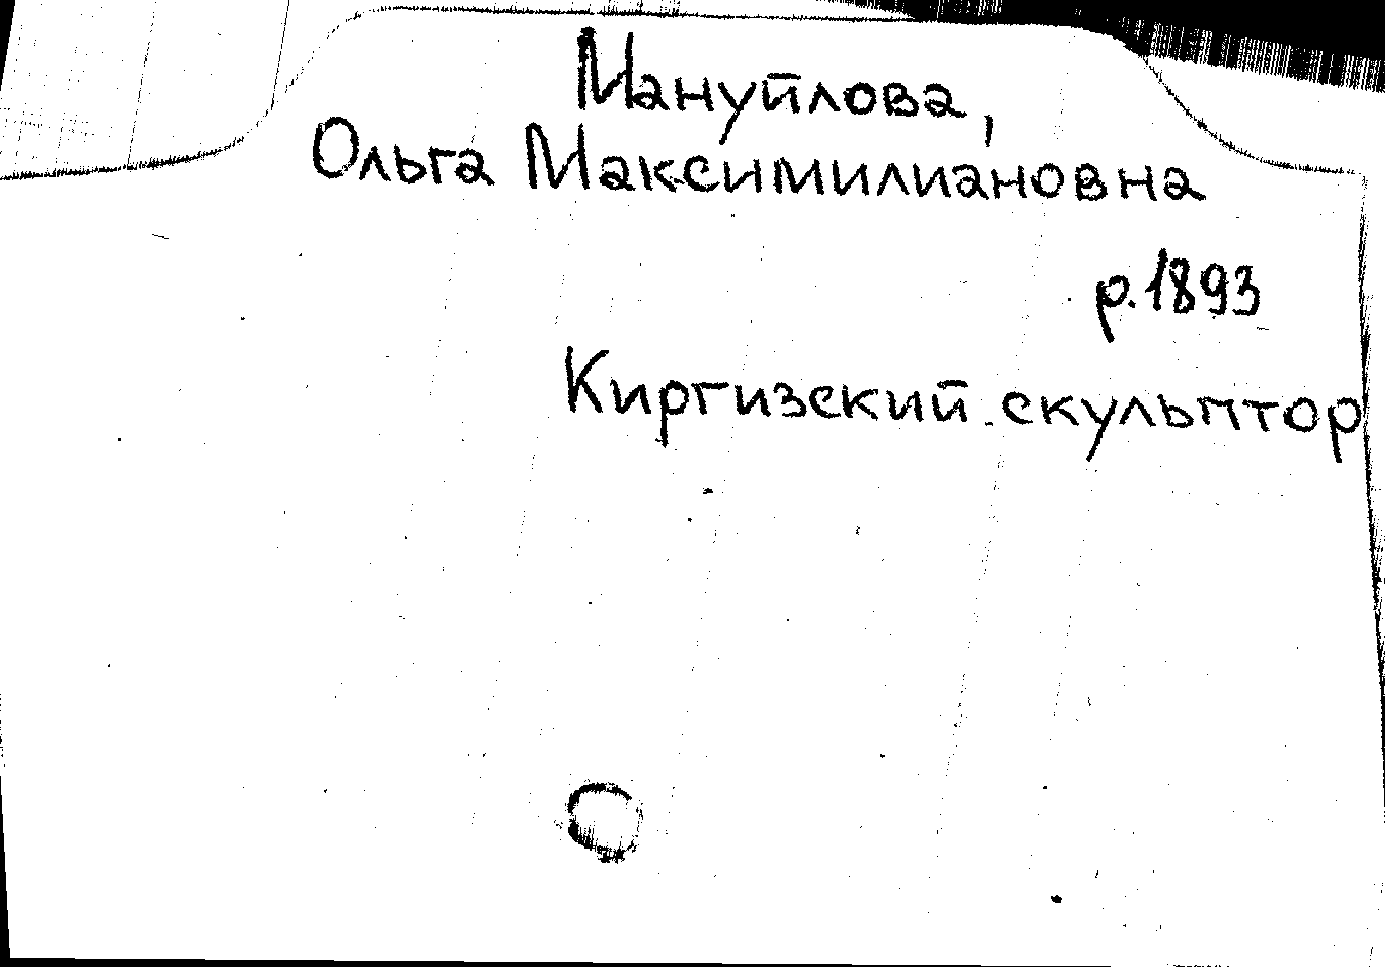 Мануйлова,
Ольга Максимилиановна
р. 1893
Киргизский скульптор